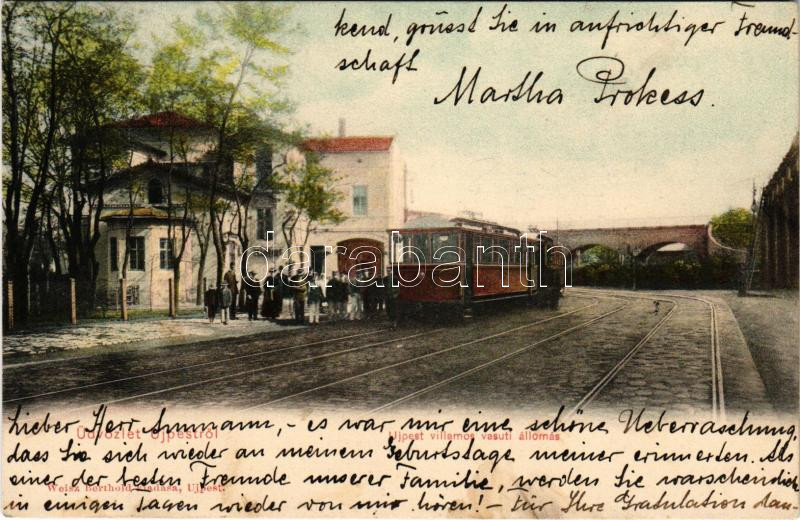 kend, grüsst Sie in aufrichtiger Freund-
schaft
Martha Prokess.
darabanth.com
Lieber Herr Ammann, - es war mir eine schöne Ueberraschung,
Üdvözlet Ujpestről
Ujpest villamos vasuti állomás
dass Sie sich wieder an meinem Geburtstage meiner erinnerten. Als
einer der besten Freunde unserer Familie, werden Sie warscheindlich
Weisz Berthold kiadása, Ujpest.
in einigen Tagen wieder von mir hören! - Für Ihre Gratulation dan-